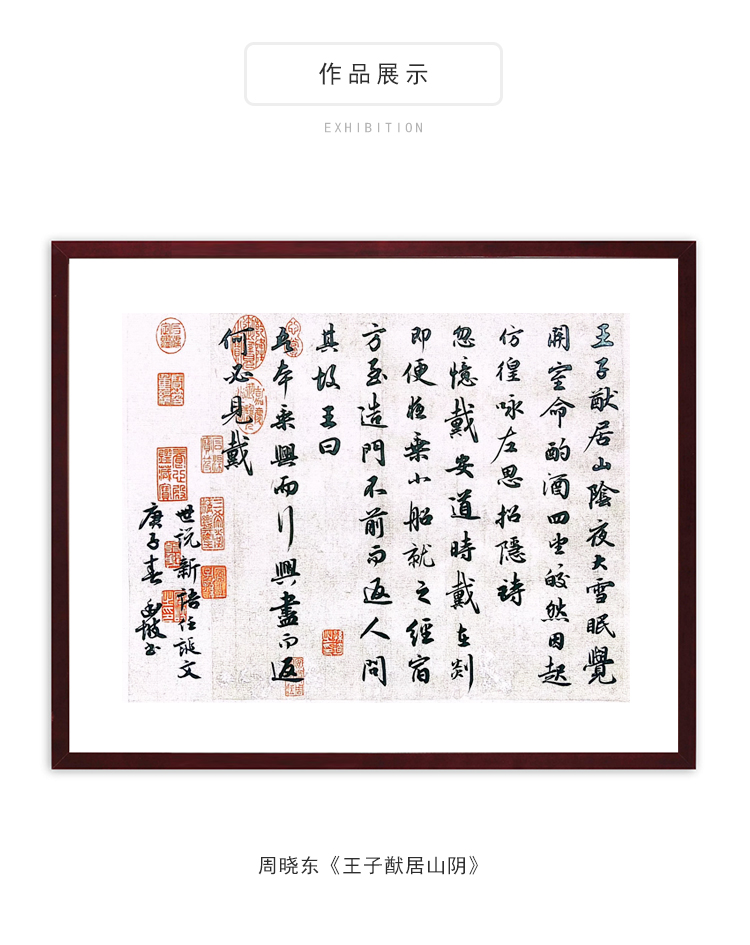 作品展示
EXHIBITION
王子猷居山陰夜大雪眠覺
開室命酌酒四望皎然因起
仿徨咏左思招隱詩
忽憶戴安道時戴在剡
即便夜乘小船就之經宿
方至造門不前而返人問
其故王曰
吾本乘興而行興盡而返
何必見戴
世说新語任誕文
庚子春
周晓东《王子猷居山阴》